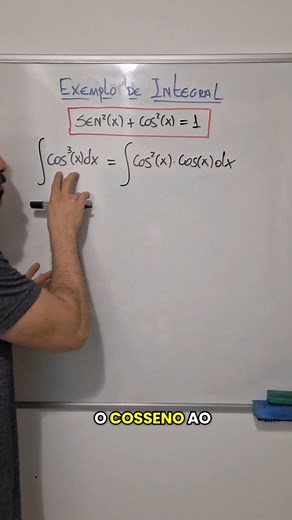 Exemplo de Integral
sen²(x) + cos²(x) = 1
∫cos³(x)dx = ∫cos²(x)·cos(x)dx
O COSSENO AO